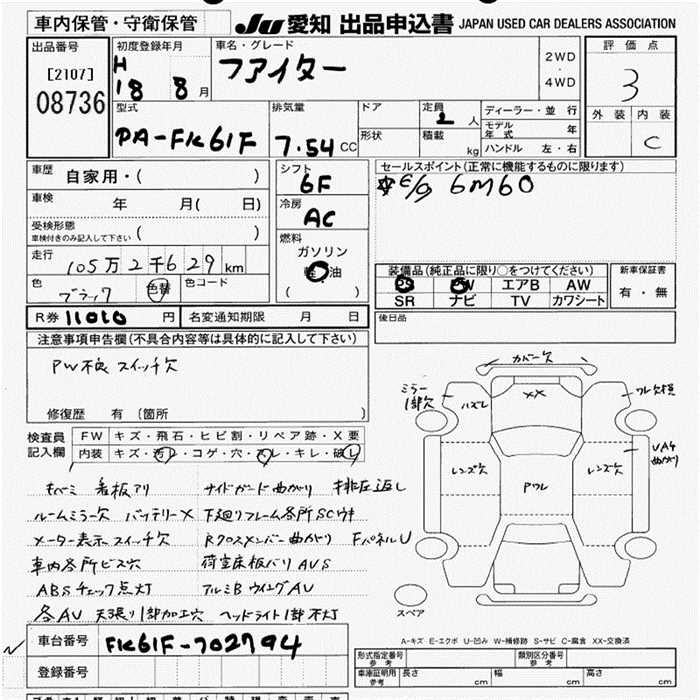 車内保管・守衛保管
JU 愛知 出品申込書 JAPAN USED CAR DEALERS ASSOCIATION
出品番号 [2107] 08736
初度登録年月 H 18 8 月
車名・グレード ファイター
2WD ・ 4WD
評価点 3
外装 内装 C
型式 PA-FK61F
排気量 7.54 CC
ドア 形状
定員 2 人
積載 kg
ディーラー・並行
モデル年式 年
ハンドル 左・右
車歴 自家用・( )
車検 年 月( 日)
受検形態 車検付きのみ記入して下さい ( )
走行 105万2千629 km
色 ブラック 色替 色コード
シフト 6F
冷房 AC
燃料 ガソリン 軽油 ( )
セールスポイント(正常に機能するものに限ります)
E/G 6M60
装備品(純正品に限り○をつけてください)
PS PW エアB AW
SR ナビ TV カワシート
新車保証書 有・無
R券 11010 円 名変通知期限 月 日
後日品
注意事項申告欄(不具合内容等は具体的に記入して下さい)
PW不良 スイッチ欠
修復歴 有 〔箇所 〕
検査員記入欄
FW キズ・飛石・ヒビ割・リペア跡・X要
内装 キズ・汚レ・コゲ・穴・スレ・キレ・破レ
看板アリ サイドガード曲がり 排圧返し
ルームミラー欠 バッテリーX 下廻りフレーム各所SCウキ
メーター表示スイッチ欠 Rクロスメンバー曲がり FパネルU
車内各所ビス穴 荷室床板バリ AVS
ABSチェック点灯 アルミB ウイングAU
各AU 天張り1部加工穴 ヘッドライト1部不灯
カバー欠
ミラー1部欠
ハズレ
XX
ワレ欠損
レンズ欠
Pワレ
レンズ欠
UA4 曲がり
スペア
A-キズ E-エクボ U-凹み W-補修跡 S-サビ C-腐食 XX-交換済
車台番号 FK61F-702794
登録番号
形式指定番号 参考
類別区分番号 参考
車庫証明用 参考 長さ cm 幅 cm 高さ cm